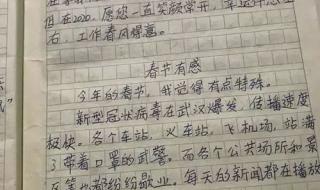 但在2020,愿您一直笑颜常开,幸运伴您左
右,工作春风得意。
春节有感
今年的春节,我觉得有点特殊。
新型冠状病毒在武汉爆发,传播速度
极快。各个车站,火车站,飞机场,站满
了带着口罩的武警。而各个公共场所和景
都纷纷歇业。每天的新闻都在播放